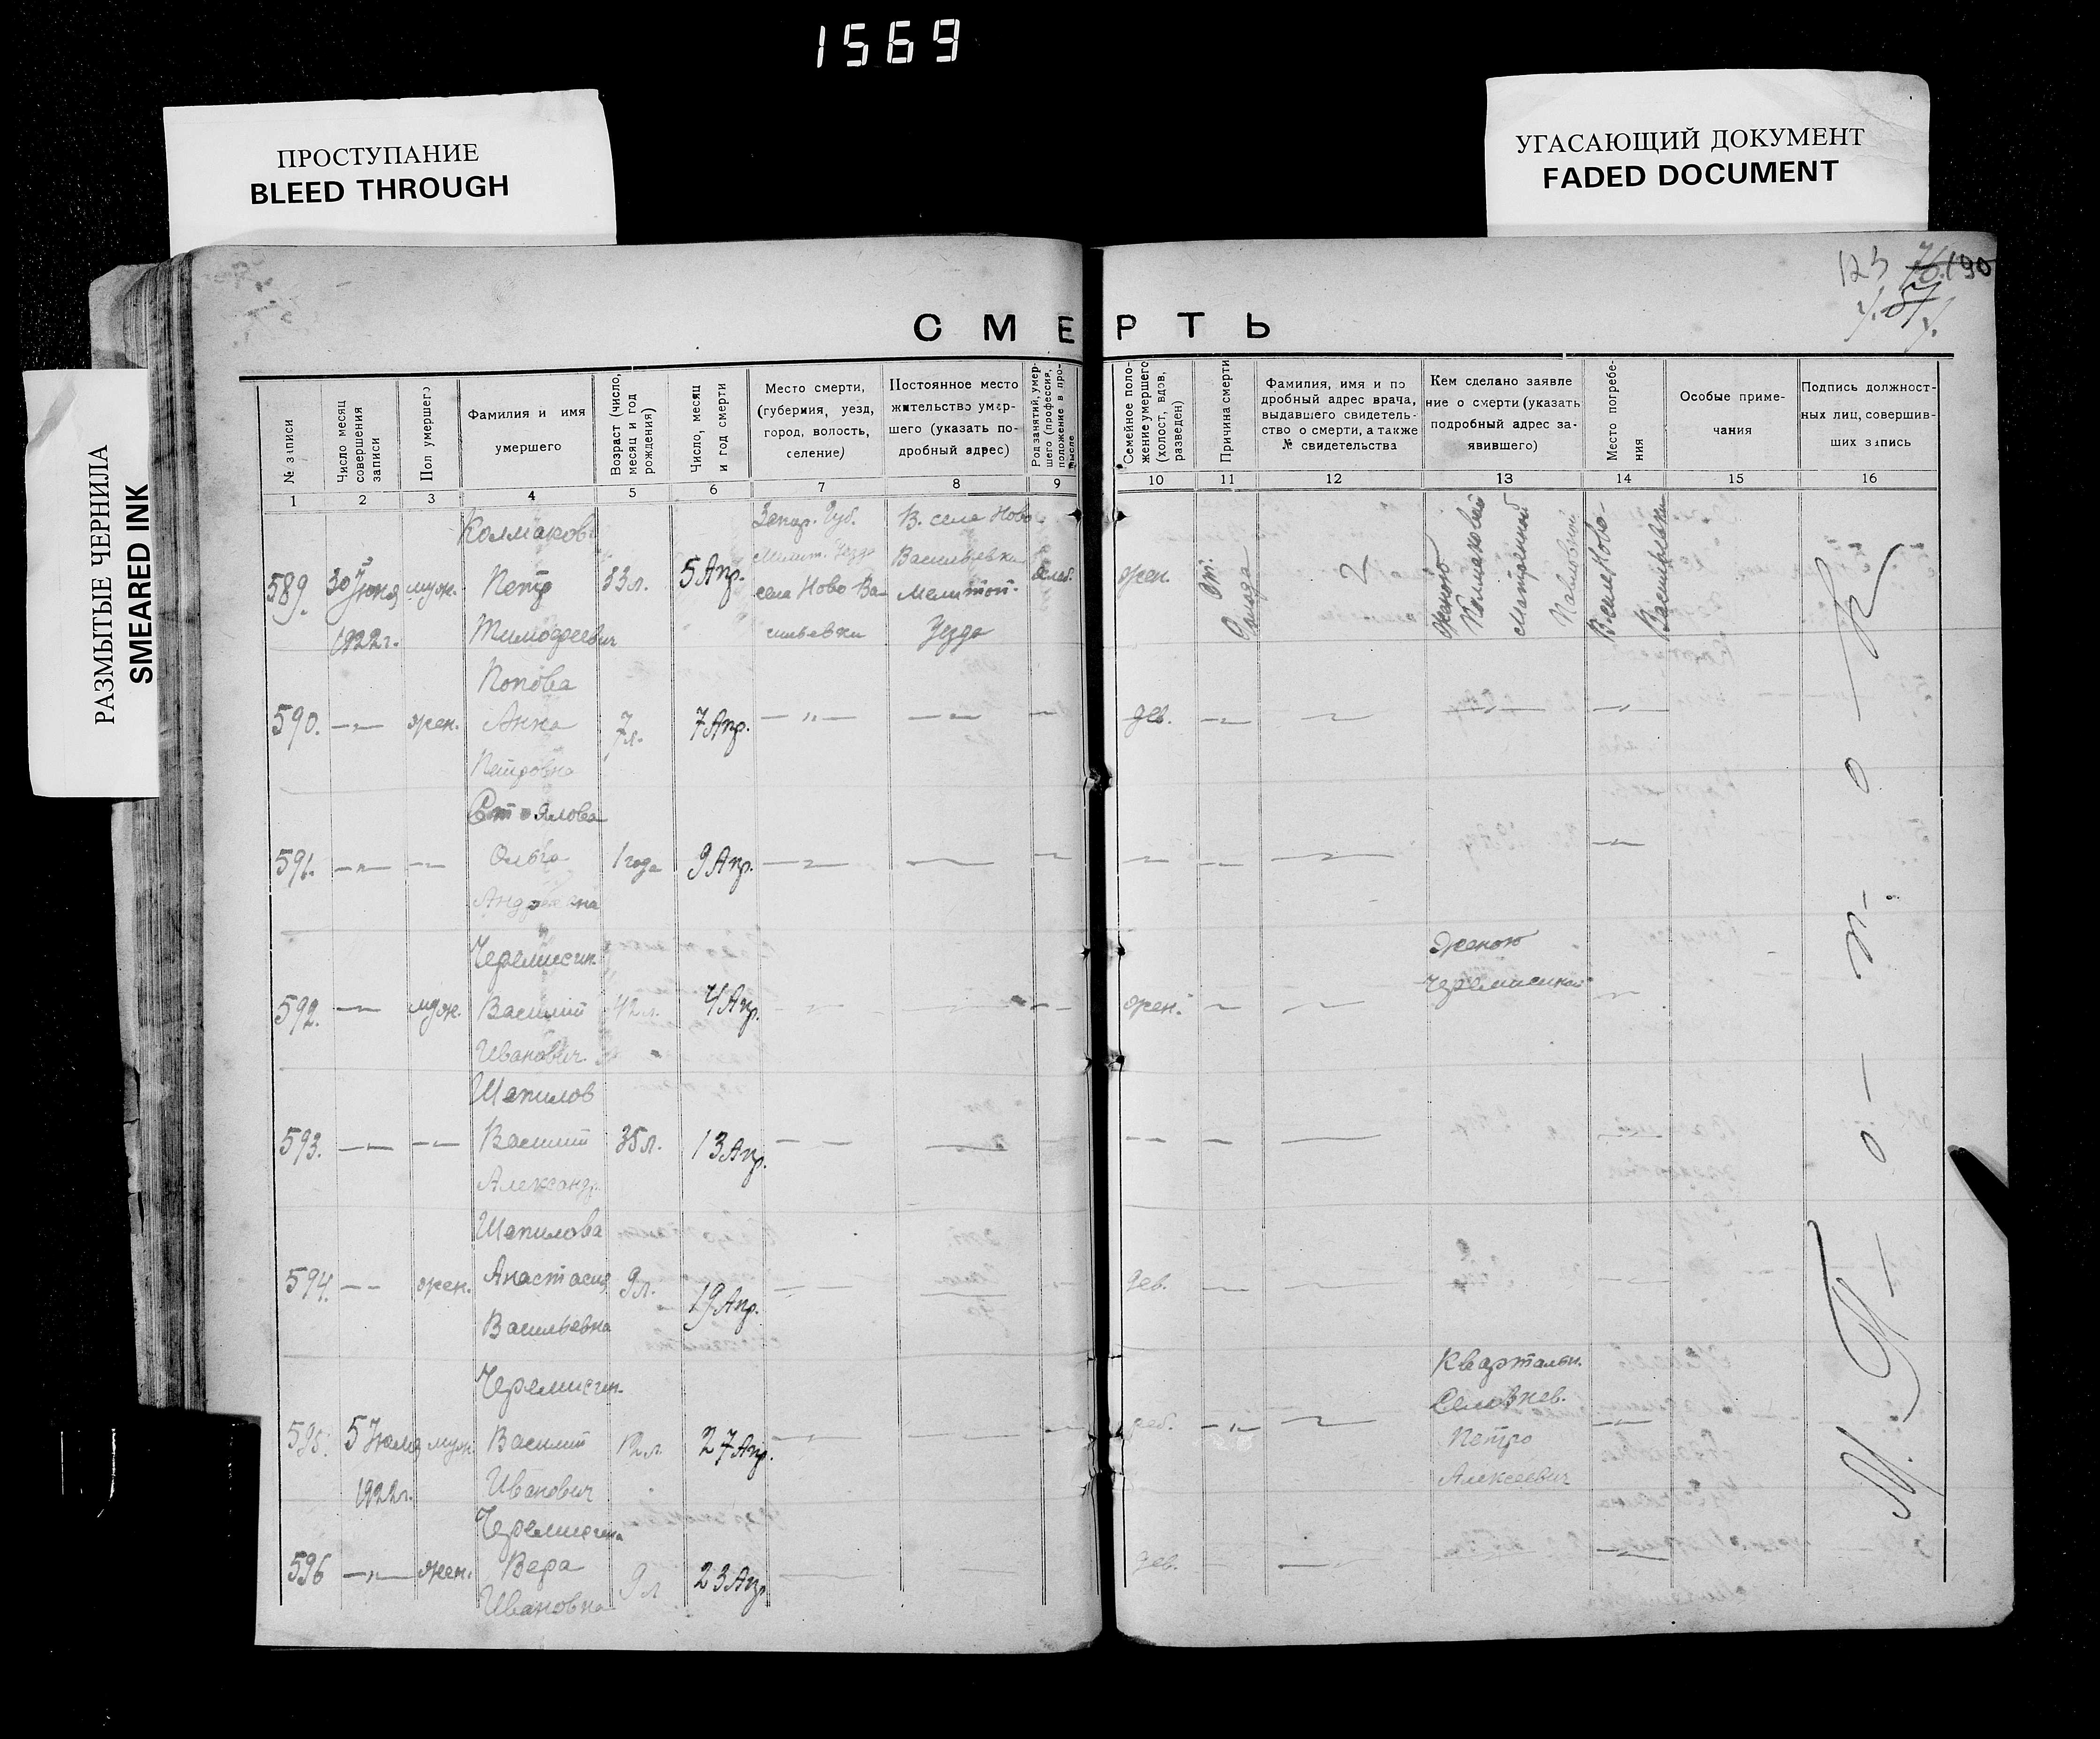 1569
ПРОСТУПАНИЕ
BLEED THROUGH
УГАСАЮЩИЙ ДОКУМЕНТ
FADED DOCUMENT
РАЗМЫТЫЕ ЧЕРНИЛА
SMEARED INK
190
СМЕРТЬ
№ записи
Число месяц
совершения
записи
Пол умершего
Фамилия и имя
умершего
Возраст (число,
месяц и год
рождения)
Число, месяц
и год смерти
Место смерти,
(губерния, уезд,
город, волость,
селение)
Постоянное место
жительство умер-
шего (указать по-
дробный адрес)
Род занятий, умер-
шего (профессия,
положение в про-
мысле
Семейное поло-
жение умершего
(холост, вдов,
разведен)
Причина смерти
Фамилия, имя и по
дробный адрес врача,
выдавшего свидетель-
ство о смерти, а также
№ свидетельства
Кем сделано заявле
ние о смерти (указать
подробный адрес за-
явившего)
Место погребе-
ния
Особые приме-
чания
Подпись должност-
ных лиц, совершив-
ших запись
1 2 3 4 5 6 7 8 9 10 11 12 13 14 15 16
589.
30 Июня
1922 г.
муж.
Колмаков
Петр
Тимофеевич
53 л.
5 Апр.
Запор. Губ.
Мелит. Уезда
села Ново Ва-
сильевки
В. села Ново-
Васильевки
Мелитоп.
Уезда
жен.
От
Голода
Женою
Колмаковой
Матреной
Павловной
В селе Ново-
Васильевки
590.
жен.
Попова
Анна
Петровна
7 л.
7 Апр.
дев.
591.
Стоялова
Ольга
Андреевна
1 года
9 Апр.
592.
муж.
Черемисин
Василий
Иванович
42 л.
4 Апр.
жен.
Женою
Черемисиной
593.
Шепилов
Василий
Александр.
35 л.
13 Апр.
594.
жен.
Шепилова
Анастасия
Васильевна
9 л.
19 Апр.
дев.
595.
5 Июля
1922 г.
муж.
Черемисин
Василий
Иванович
12 л.
27 Апр.
реб.
Квартальн.
Петро
Алексеевич
596
жен.
Черемисина
Вера
Ивановна
9 л
23 Апр
дев.